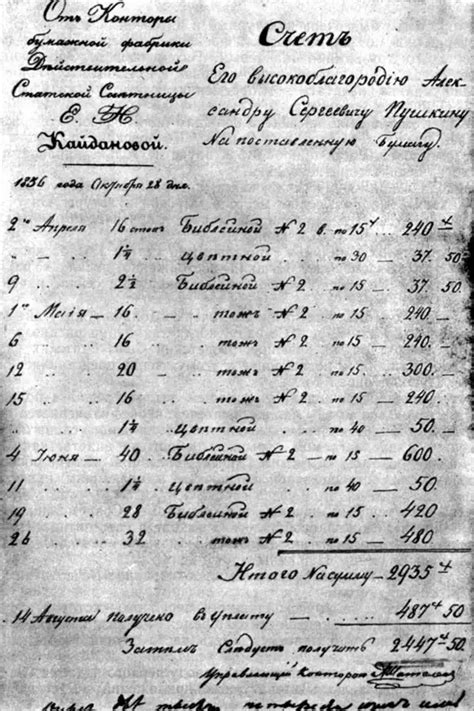 Отъ Конторы
бумажной фабрики
Дѣйствительной
Статской Совѣтницы
Е. Н.
Кайдановой.
Счетъ
Его высокоблагородію Алек-
сандру Сергеевичу Пушкину
На поставленную Бумагу.
1836 года Октября 28 дня.
2го Апреля 16 стопъ Библейной № 2 в. по 15 — 240
„ .. 1¼ .. цвѣтной .. по 30 — 37. 50
9 .. 2½ .. Библейной № 2 .. по 15 — 37. 50
1го Маія — 16 .. тожъ № 2 . по 15 — 240 —
6 .. 16 .. тожъ № 2 . по 15 — 240 —
12 .. 20 — тожъ № 2 . по 15 — 300. —
15 .. 16 .. тожъ № 2 .. по 15 — 240.
„ .. 1¼ .. цвѣтной .. по 40 — 50. —
4 Іюня — 40 .. Библейной № 2 — по 15 — 600.
11 .. 1¼ .. цвѣтной .. по 40 — 50.
19 .. 28 Библейной № 2 . по 15 .. 420
26 .. 32 .. тожъ № 2 . по 15 — 480
Итого На сумму — 2935
14 Августа получено въ уплату — 487 50
Затѣмъ Слѣдуетъ получить 2447 50.
Управляющій Конторою